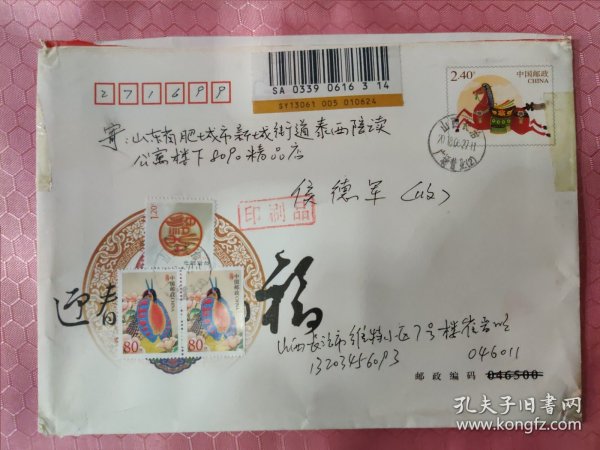 271699
SA 0339 0616 3 14
SY13061 005 010624
2.40元
中国邮政
CHINA
寄:山东省肥城市新城街道泰西陪读
公寓楼下809精品店
侯德军(收)
印刷品
1.20
中国邮政
80分
中国邮政
80分
迎春
福
山西长治市维特小区7号楼
13203456093
046011
邮政编码 046500
孔夫子旧书网
www.kongfz.com